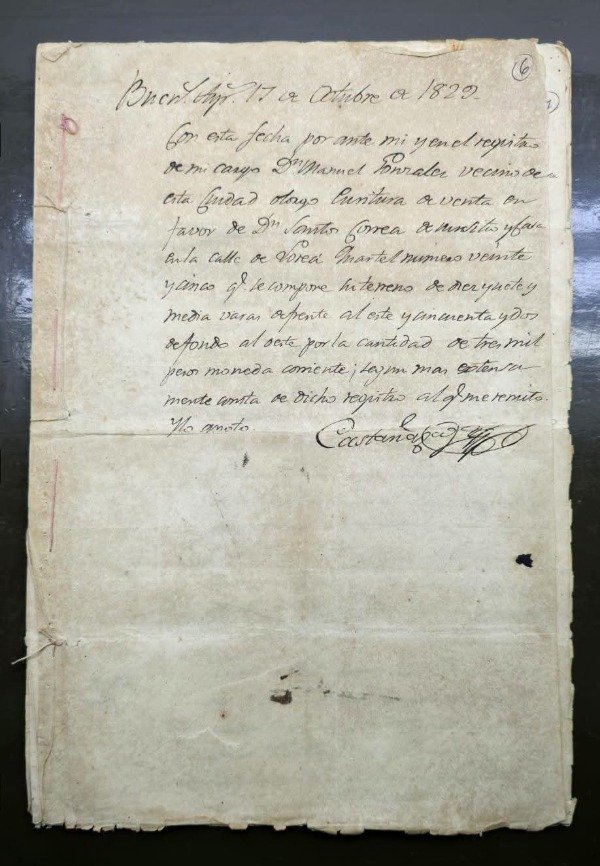 6
1
Buen.s Ayr.s 17 de Octubre de 1829.
Con esta fecha por ante mi y en el registro
de mi cargo Dn Manuel Gonzalez vecino de
esta Ciudad otorgo Escritura de venta en
favor de Dn Santos Correa de un sitio y Casa
en la calle de Lorea Martel numero veinte
y cinco q.e se compone su terreno de diez y siete y
media varas de frente al este y cincuenta y dos
de fondo al oeste por la cantidad de tres mil
pesos moneda corriente; segun mas extensa
mente consta de dicho registro al q.e me remito.
Y lo anoto.
Castañaga